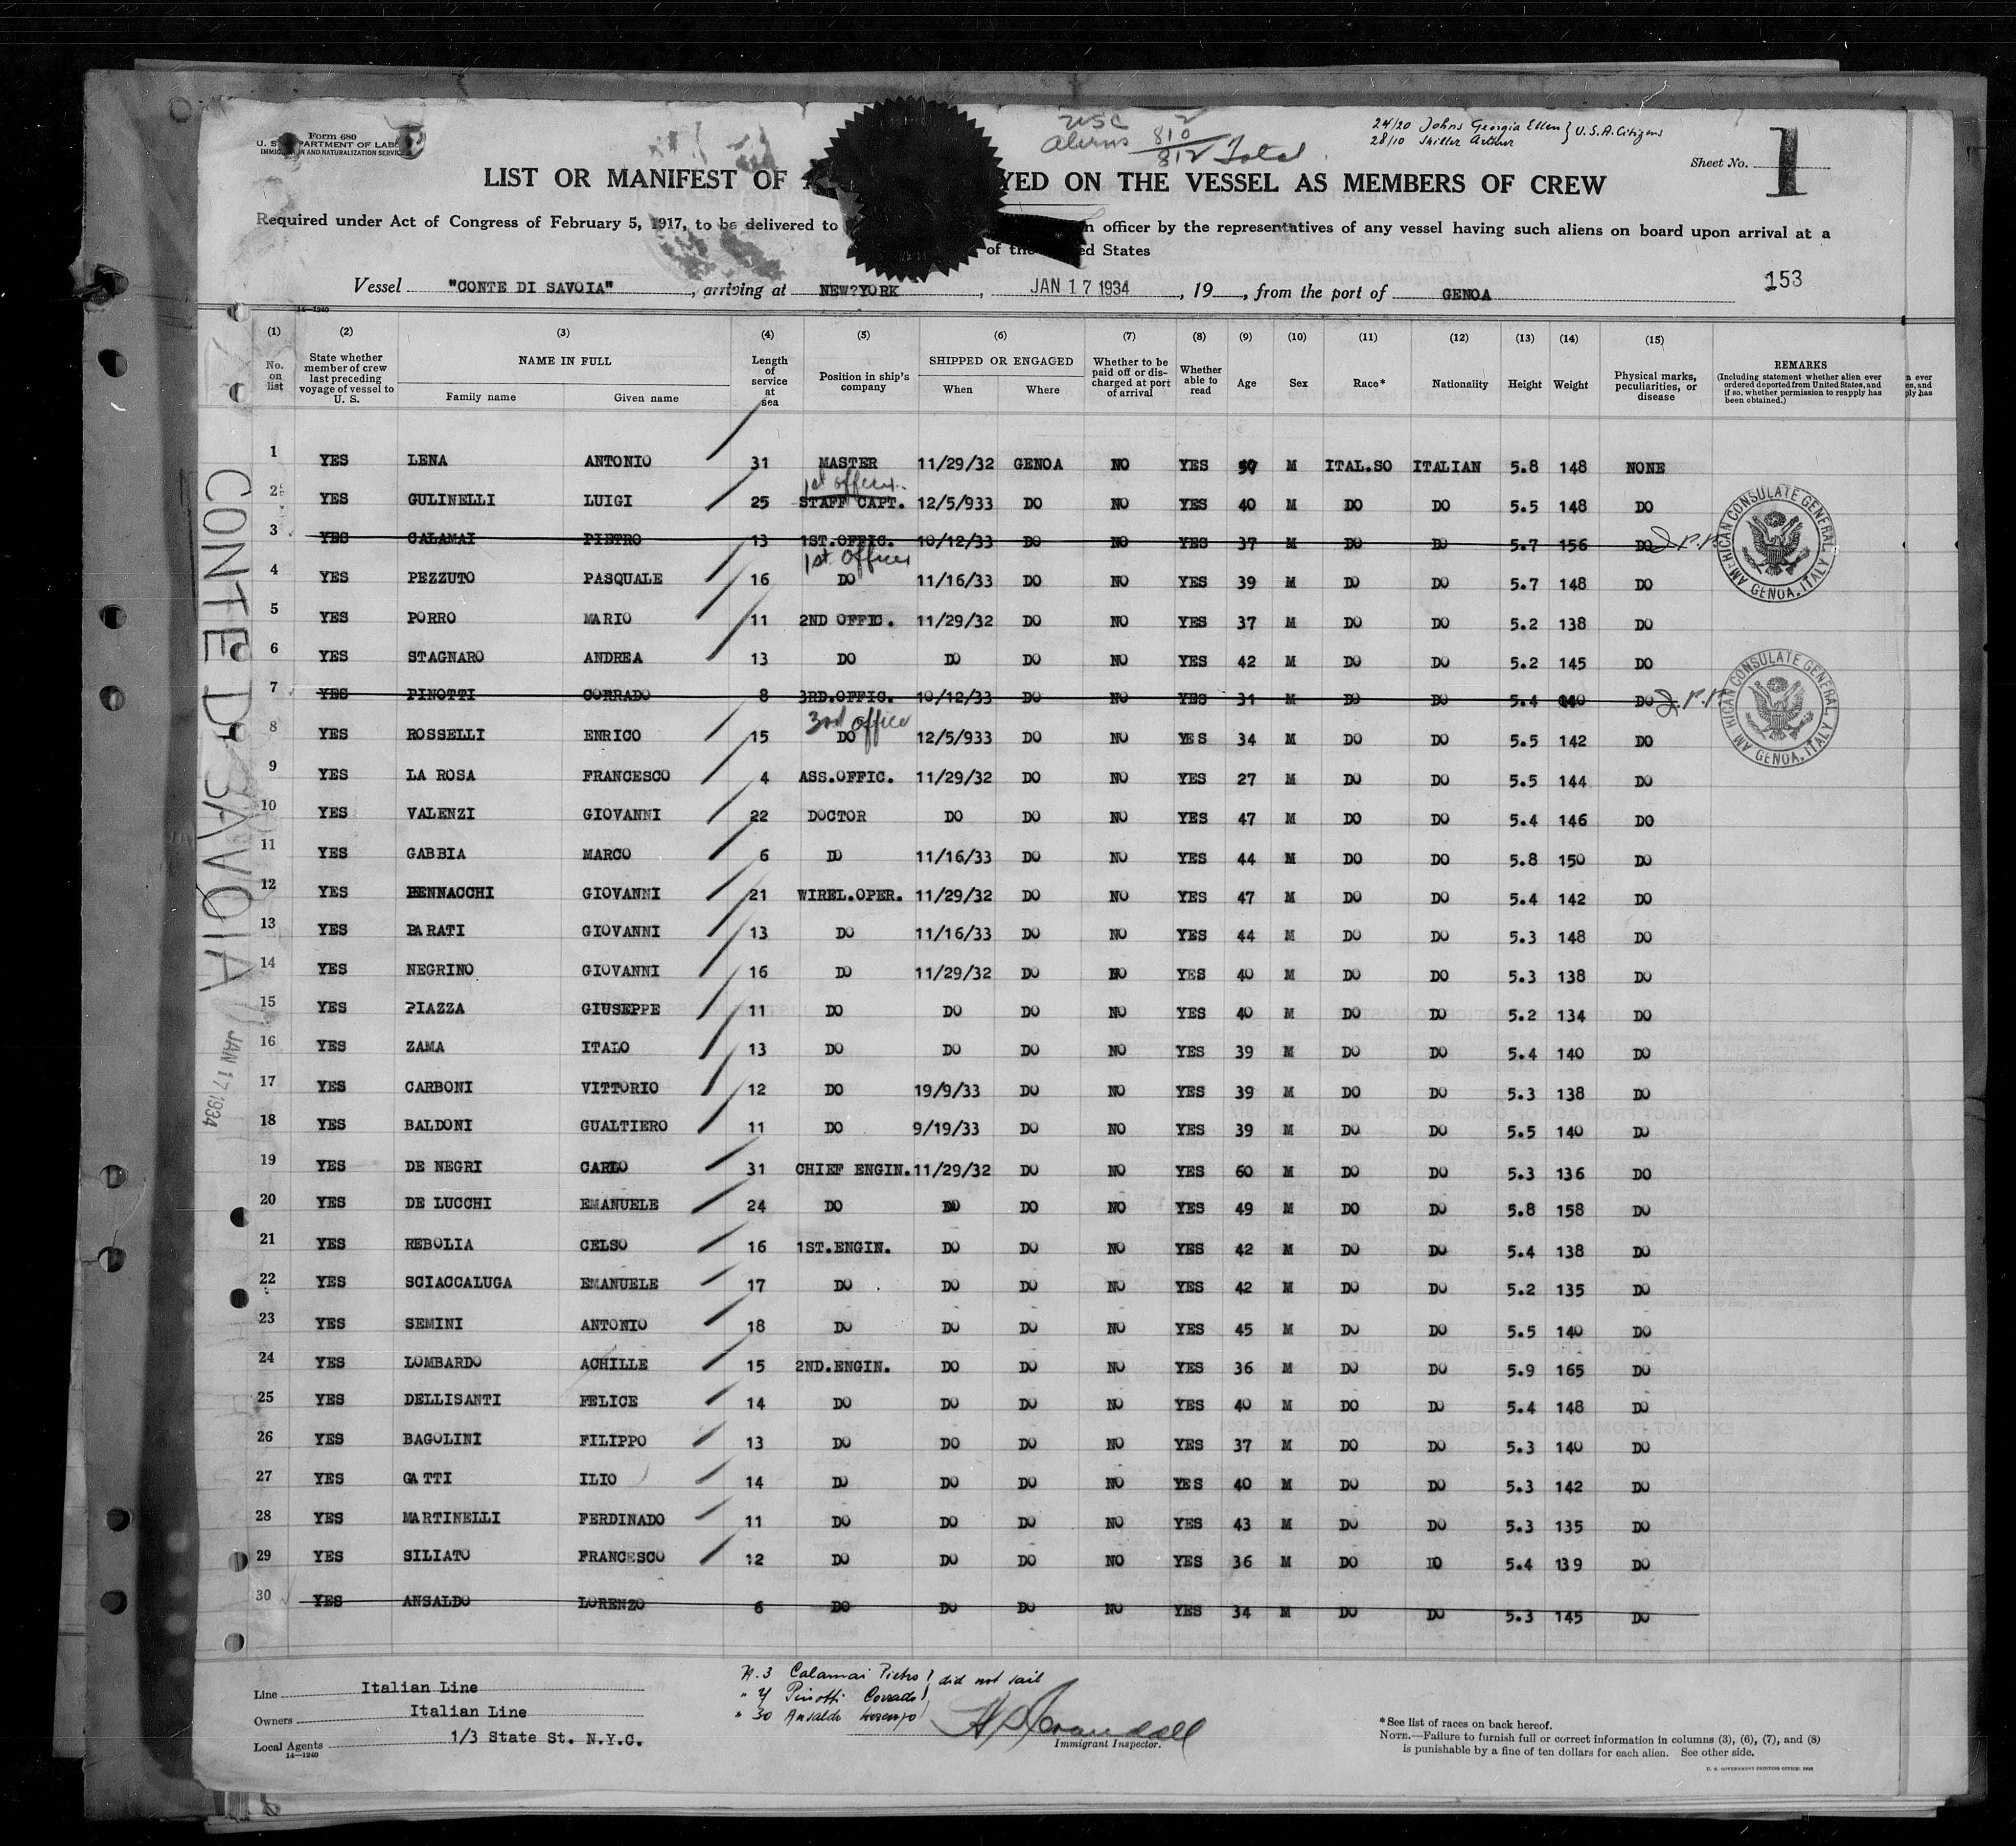 Form 680
U. S. DEPARTMENT OF LABOR
IMMIGRATION AND NATURALIZATION SERVICE
USC 2
Aliens 810
812 Total
24/20 Johns Georgia Ellen } U.S.A. Citizens
28/10 Arthur
Sheet No. 1
LIST OR MANIFEST OF YED ON THE VESSEL AS MEMBERS OF CREW
Required under Act of Congress of February 5, 1917, to be delivered to officer by the representatives of any vessel having such aliens on board upon arrival at a
of the United States
Vessel "CONTE DI SAVOIA", arriving at NEW?YORK, JAN 17 1934, 19 , from the port of GENOA
153
14—1240
(1) (2) (3) (4) (5) (6) (7) (8) (9) (10) (11) (12) (13) (14) (15)
No. on list
State whether member of crew last preceding voyage of vessel to U. S.
NAME IN FULL
Family name Given name
Length of service at sea
Position in ship's company
SHIPPED OR ENGAGED
When Where
Whether to be paid off or discharged at port of arrival
Whether able to read
Age Sex Race* Nationality Height Weight
Physical marks, peculiarities, or disease
REMARKS
(Including statement whether alien ever ordered deported from United States, and if so, whether permission to reapply has been obtained.)
n ever
es, and
ply has
1 YES LENA ANTONIO 31 MASTER 11/29/32 GENOA NO YES M ITAL.SO ITALIAN 5.8 148 NONE
1st officer.
2 YES GULINELLI LUIGI 25 STAFF CAPT. 12/5/933 DO NO YES 40 M DO DO 5.5 148 DO
3 YES CALAMAI PIETRO 13 1ST.OFFIC. 10/12/33 DO NO YES 37 M DO DO 5.7 156 DO
1st Officer
4 YES PEZZUTO PASQUALE 16 DO 11/16/33 DO NO YES 39 M DO DO 5.7 148 DO
5 YES PORRO MARIO 11 2ND OFFIC. 11/29/32 DO NO YES 37 M DO DO 5.2 138 DO
6 YES STAGNARO ANDREA 13 DO DO DO NO YES 42 M DO DO 5.2 145 DO
7 YES PINOTTI CORRADO 8 3RD.OFFIC. 10/12/33 DO NO YES 31 M DO DO 5.4 140 DO
3rd office
8 YES ROSSELLI ENRICO 15 DO 12/5/933 DO NO YES 34 M DO DO 5.5 142 DO
9 YES LA ROSA FRANCESCO 4 ASS.OFFIC. 11/29/32 DO NO YES 27 M DO DO 5.5 144 DO
10 YES VALENZI GIOVANNI 22 DOCTOR DO DO NO YES 47 M DO DO 5.4 146 DO
11 YES GABBIA MARCO 6 DO 11/16/33 DO NO YES 44 M DO DO 5.8 150 DO
12 YES BENNACCHI GIOVANNI 21 WIREL.OPER. 11/29/32 DO NO YES 47 M DO DO 5.4 142 DO
13 YES PARATI GIOVANNI 13 DO 11/16/33 DO NO YES 44 M DO DO 5.3 148 DO
14 YES NEGRINO GIOVANNI 16 DO 11/29/32 DO NO YES 40 M DO DO 5.3 138 DO
15 YES PIAZZA GIUSEPPE 11 DO DO DO NO YES 40 M DO DO 5.2 134 DO
16 YES ZAMA ITALO 13 DO DO DO NO YES 39 M DO DO 5.4 140 DO
17 YES CARBONI VITTORIO 12 DO 19/9/33 DO NO YES 39 M DO DO 5.3 138 DO
18 YES BALDONI GUALTIERO 11 DO 9/19/33 DO NO YES 39 M DO DO 5.5 140 DO
19 YES DE NEGRI CARLO 31 CHIEF ENGIN. 11/29/32 DO NO YES 60 M DO DO 5.3 136 DO
20 YES DE LUCCHI EMANUELE 24 DO DO DO NO YES 49 M DO DO 5.8 158 DO
21 YES REBOLIA CELSO 16 1ST.ENGIN. DO DO NO YES 42 M DO DO 5.4 138 DO
22 YES SCIACCALUGA EMANUELE 17 DO DO DO NO YES 42 M DO DO 5.2 135 DO
23 YES SEMINI ANTONIO 18 DO DO DO NO YES 45 M DO DO 5.5 140 DO
24 YES LOMBARDO ACHILLE 15 2ND.ENGIN. DO DO NO YES 36 M DO DO 5.9 165 DO
25 YES DELLISANTI FELICE 14 DO DO DO NO YES 40 M DO DO 5.4 148 DO
26 YES BAGOLINI FILIPPO 13 DO DO DO NO YES 37 M DO DO 5.3 140 DO
27 YES GATTI ILIO 14 DO DO DO NO YES 40 M DO DO 5.3 142 DO
28 YES MARTINELLI FERDINADO 11 DO DO DO NO YES 43 M DO DO 5.3 135 DO
29 YES SILIATO FRANCESCO 12 DO DO DO NO YES 36 M DO DO 5.4 139 DO
30 YES ANSALDO LORENZO 6 DO DO DO NO YES 34 M DO DO 5.3 145 DO
AMERICAN CONSULATE GENERAL GENOA, ITALY
AMERICAN CONSULATE GENERAL GENOA, ITALY
CONTE DI SAVOIA
JAN 17 1934
N. 3 Calamai Pietro } did not sail
" 7 Pinotti Corrado
" 30 Ansaldo Lorenzo
Line Italian Line
Owners Italian Line
Local Agents 1/3 State St. N.Y.C.
14—1240
Immigrant Inspector.
*See list of races on back hereof.
NOTE.—Failure to furnish full or correct information in columns (3), (6), (7), and (8)
is punishable by a fine of ten dollars for each alien. See other side.